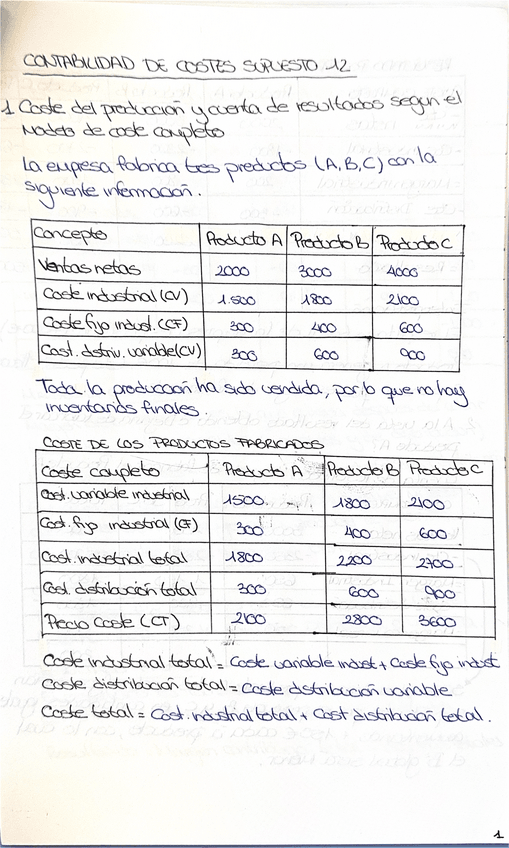 CONTABILIDAD DE COSTES SUPUESTO 12
1 Coste del producción y cuenta de resultados según el
Modelo de coste completo
La empresa fabrica tres productos (A,B,C) con la
siguiente información.
Concepto Producto A Producto B Producto C
Ventas netas 2000 3000 4000
Coste industrial (CV) 1.500 1800 2100
Coste fijo indust. (CF) 300 400 600
Cost. distriv. variable (CV) 300 600 900
Toda la producción ha sido vendida, por lo que no hay
inventarios finales.
COSTE DE LOS PRODUCTOS FABRICADOS
Coste completo Producto A Producto B Producto C
Cost. variable industrial 1500 1800 2100
Cost. fijo industrial (CF) 300 400 600
Cost. industrial total 1800 2200 2700
Cost. distribución total 300 600 900
Precio Coste (CT) 2100 2800 3600
Coste industrial total = Coste variable indust + Coste fijo indust
Coste distribución total = Coste distribución variable
Coste total = Cost. industrial total + Cost distribución total.
1